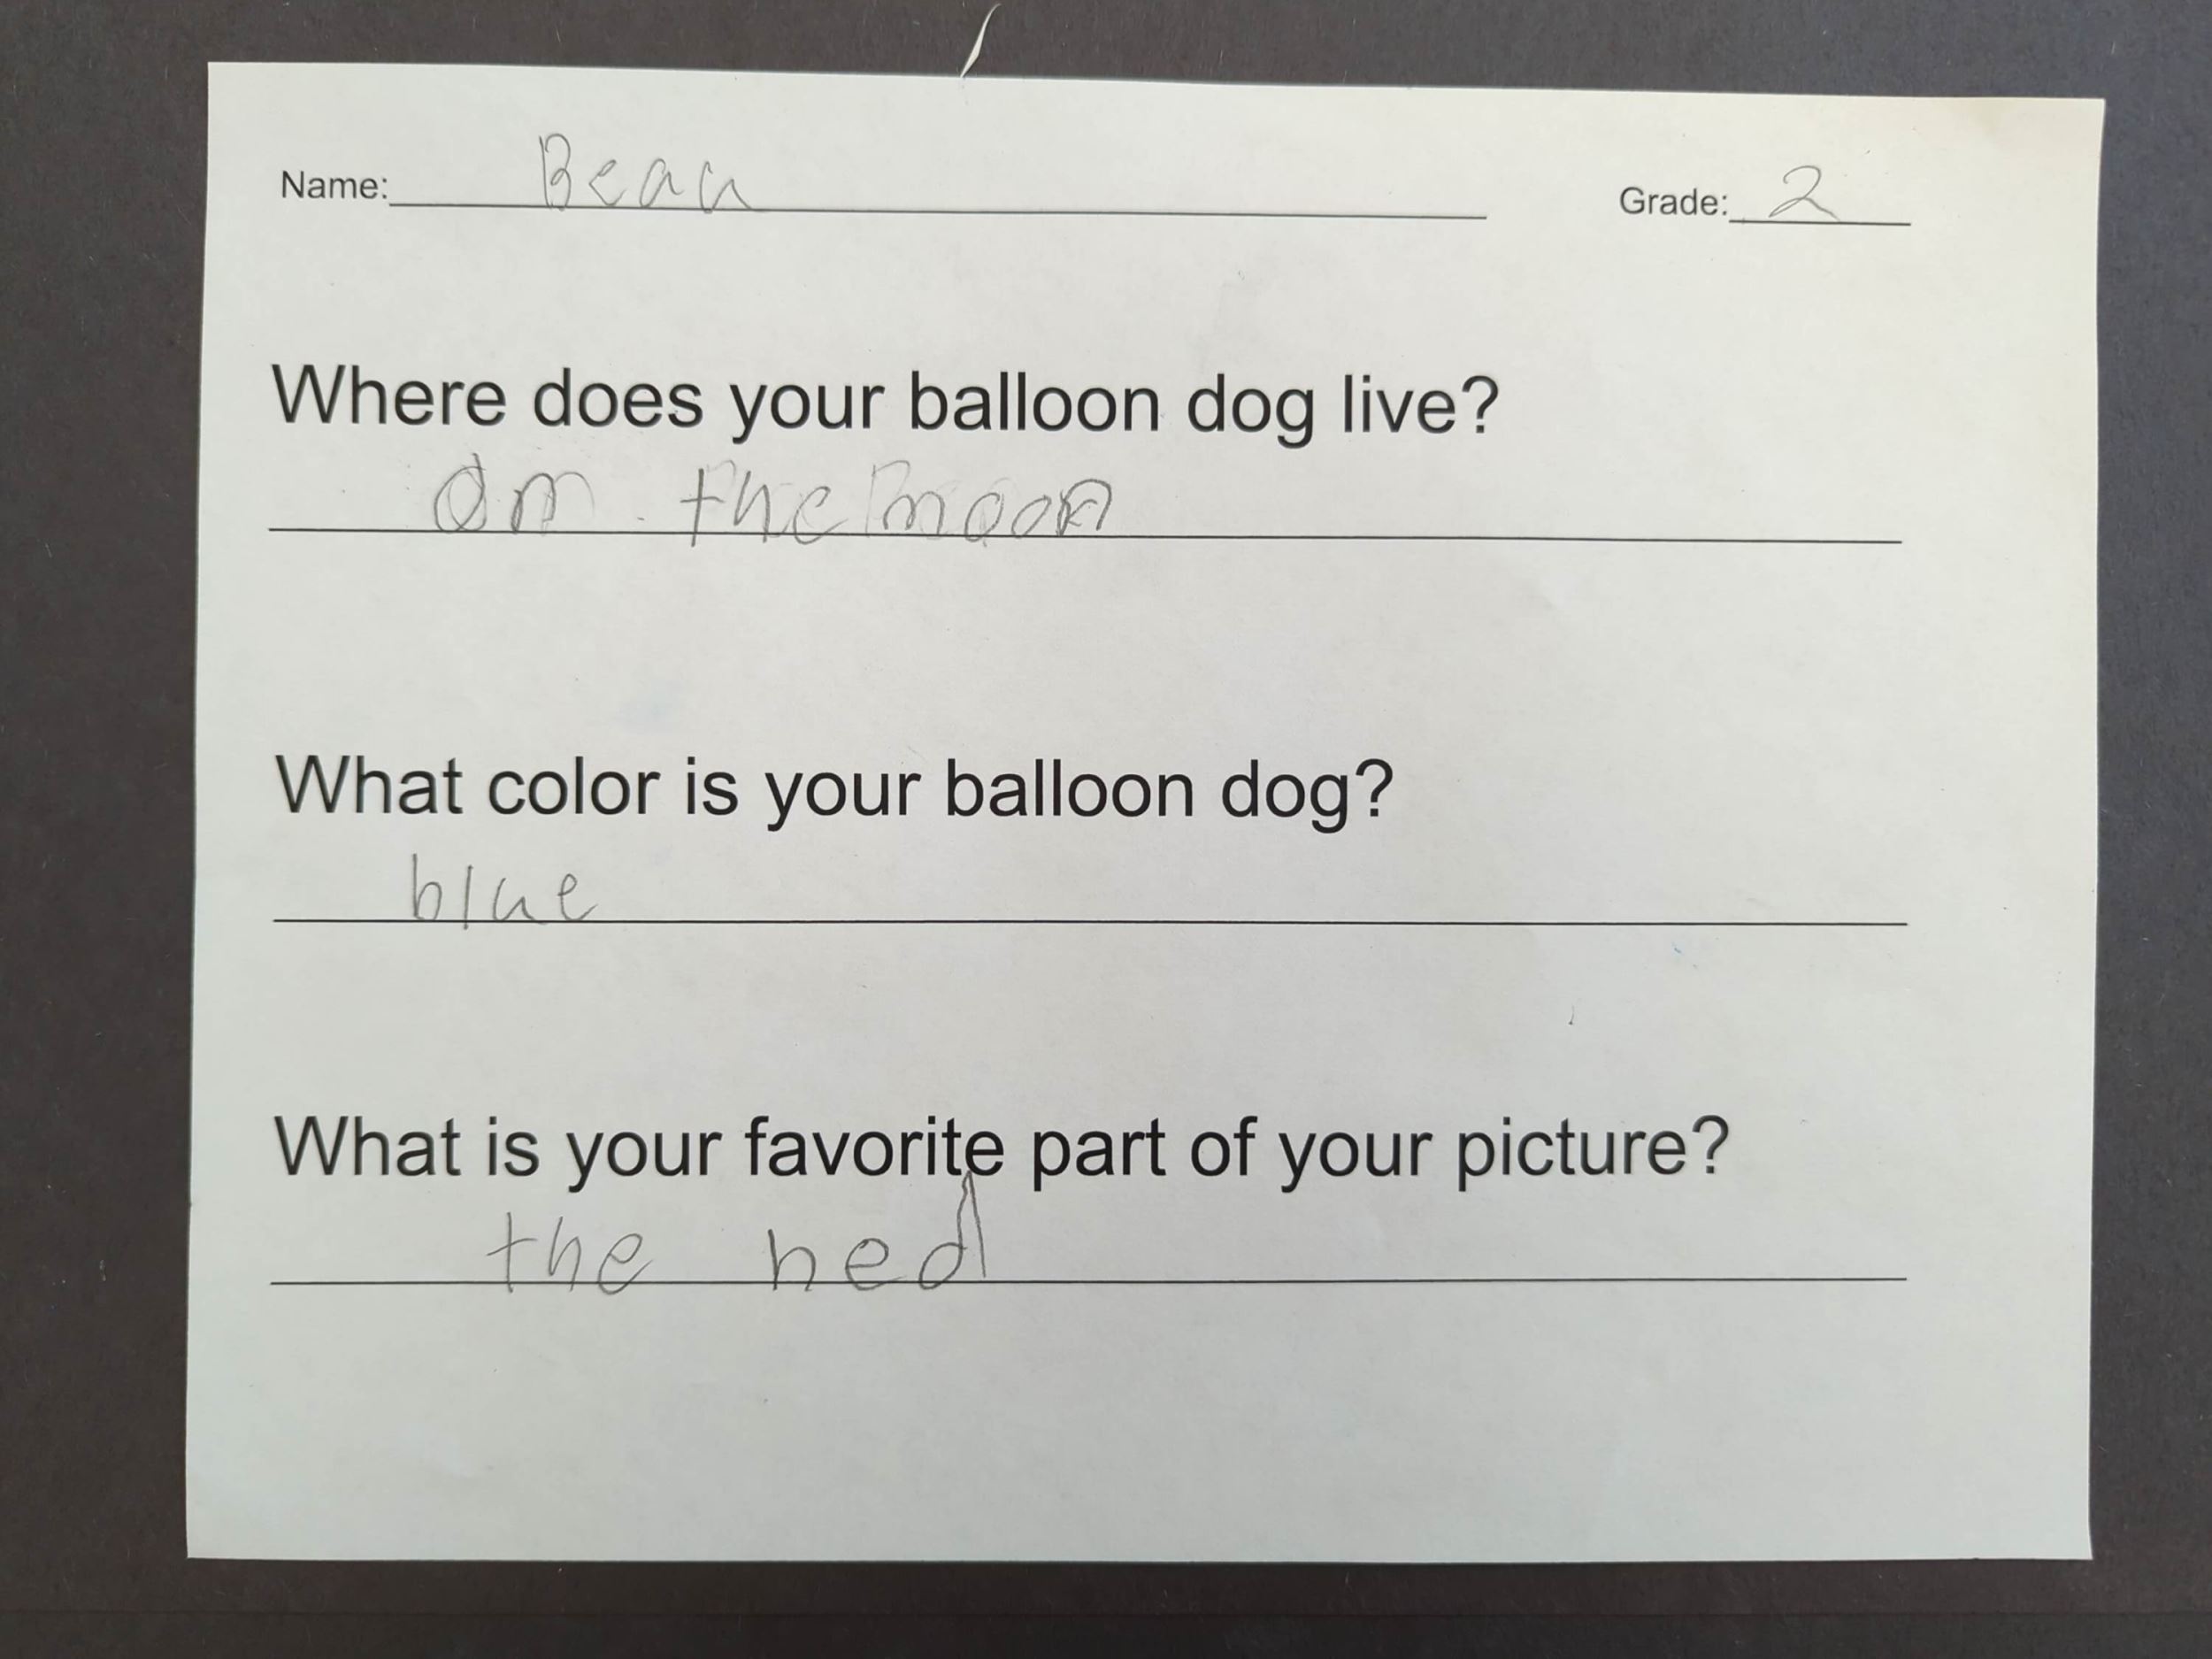 Name: Beau Grade: 2
Where does your balloon dog live?
On the moon
What color is your balloon dog?
blue
What is your favorite part of your picture?
the hed